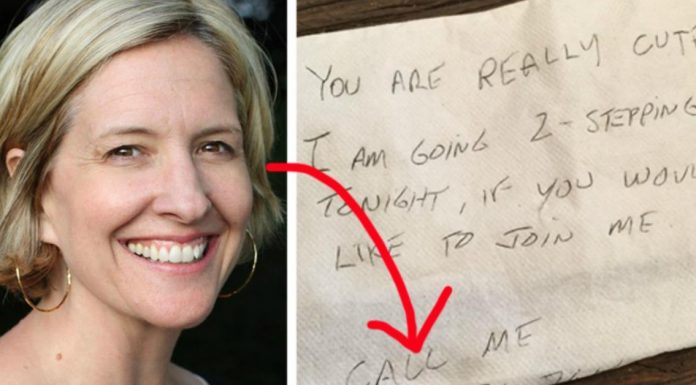 YOU ARE REALLY CUTE
I AM GOING 2-STEPPING
TONIGHT, IF YOU WOUL
LIKE TO JOIN ME
CALL ME